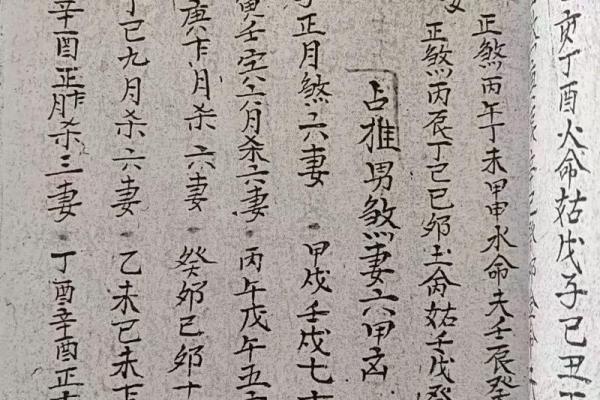 亥丁酉火命姑戊子己丑
正煞丙午丁未甲申水命夫壬辰癸
正煞丙辰丁巳己卯土命姑壬戌癸
占推男煞妻六甲凶
正月煞六妻 甲戌壬戌七
寅壬六月杀六妻 丙午戊午五
庚卞月杀六妻 癸卯己卯十
丁巳九月杀六妻 乙未己未卞
辛酉正月杀三妻 丁酉辛酉正